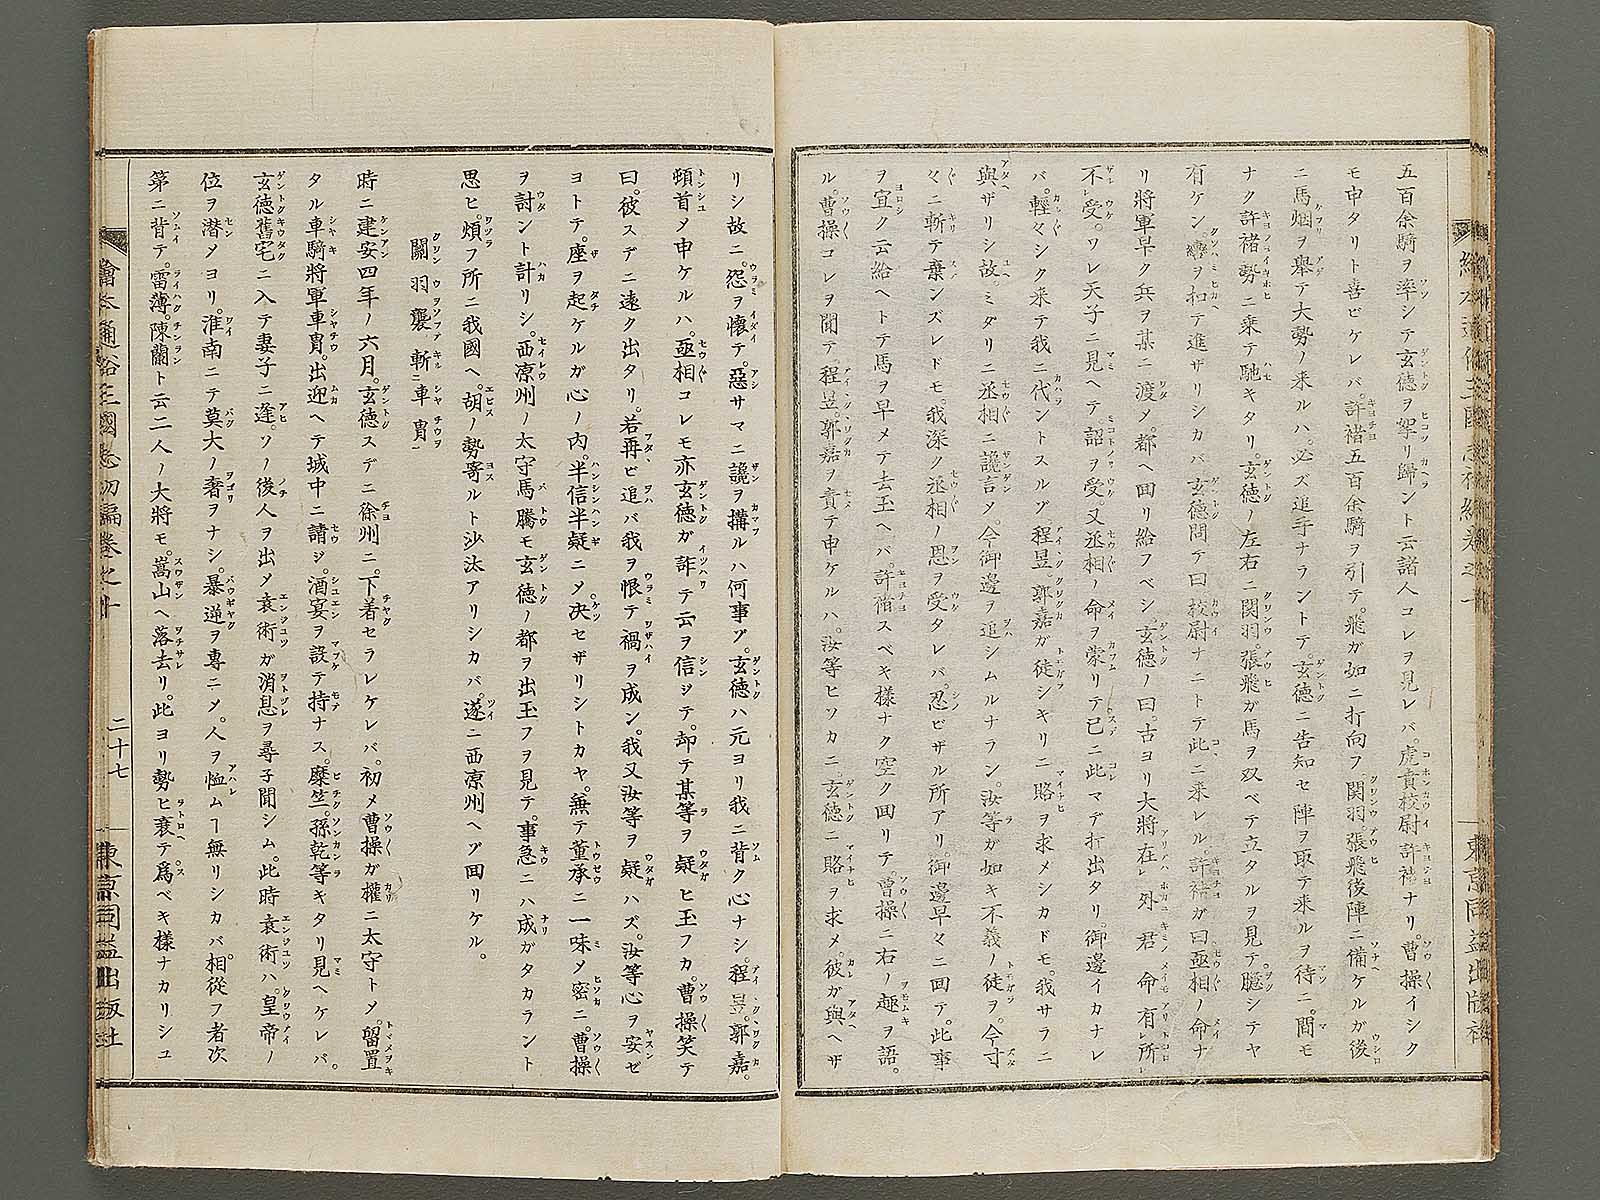 五百余騎ヲ率シテ玄徳ヲ拏リ歸ント云諸人コレヲ見レバ。虎賁校尉許褚ナリ。曹操イシク
モ申タリト喜ビケレバ。許褚五百余騎ヲ引テ。飛ガ如ニ打向フ。関羽。張飛後陣ニ備ケルガ後
ニ馬烟ヲ舉テ大勢ノ来ルハ。必ズ追手ナラントテ。玄徳ニ告知セ陣ヲ取テ来ルヲ待ニ。間モ
ナク許褚勢ニ乗テ馳キタリ。玄徳ノ左右ニ関羽。張飛ガ馬ヲ双ベテ立タルヲ見テ臆シテヤ
有ケン。轡ヲ扣テ進ザリシカバ。玄徳問テ曰校尉ナニトテ此ニ来レル。許褚ガ曰丞相ノ命ナ
リ將軍早ク兵ヲ某ニ渡メ。都ヘ回リ給フベシ。玄徳ノ曰。古ヨリ大將在レ外君命有レ所レ
不レ受。ワレ天子ニ見ヘテ。詔ヲ受又丞相ノ命ヲ蒙リテ已ニ此マデ打出タリ。御邊イカナレ
バ。輕々シク来テ我ニ代ントスルゾ程昱。郭嘉ガ徒シキリニ賂ヲ求メシカドモ。我サラニ
與ザリシ故。ミダリニ丞相ニ讒言メ。今御邊ヲ追シムルナラン。汝等ガ如キ不義ノ徒ヲ。今寸
々ニ斬テ棄ンズレドモ。我深ク丞相ノ恩ヲ受タレバ。忍ビザル所アリ。御邊早々ニ回テ。此事
ヲ宜ク云給ヘトテ馬ヲ早メテ去玉ヘバ。許褚スベキ様ナク空ク回リテ。曹操ニ右ノ趣ヲ語。
ル。曹操コレヲ聞テ。程昱。郭嘉ヲ責テ申ケルハ。汝等ヒソカニ玄徳ニ賂ヲ求メ。彼ガ與ヘザ
リシ故ニ。怨ヲ懐テ。惡サマニ讒ヲ搆ルハ何事ゾ。玄徳ハ元ヨリ我ニ背ク心ナシ。程昱。郭嘉。
頓首メ申ケルハ。丞相コレモ亦玄徳ガ詐テ云ヲ信ジテ。却テ某等ヲ疑ヒ玉フカ。曹操笑テ
曰。彼スデニ遠ク出タリ。若再ビ追バ我ヲ恨テ禍ヲ成ン。我又汝等ヲ疑ハズ。汝等心ヲ安ゼ
ヨトテ。座ヲ起ケルガ心ノ内。半信半疑ニメ決セザリシトカヤ。無テ董承ニ一味メ密ニ。曹操
ヲ討ント計リシ。西凉州ノ太守馬騰モ玄徳ノ都ヲ出玉フヲ見テ。事急ニハ成ガタカラント
思ヒ。煩フ所ニ我國ヘ。胡ノ勢寄ルト沙汰アリシカバ。遂ニ西凉州ヘゾ回リケル。
關羽襲斬ニ車冑一
時ニ建安四年ノ六月。玄徳スデニ徐州ニ。下着セラレケレバ。初メ曹操ガ權ニ太守トメ。留置
タル車騎將軍車冑。出迎ヘテ城中ニ請ジ。酒宴ヲ設テ持ナス。糜竺。孫乾等キタリ見ヘケレバ。
玄徳舊宅ニ入テ妻子ニ逢。ソノ後人ヲ出メ袁術ガ消息ヲ尋子聞シム。此時袁術ハ。皇帝ノ
位ヲ潜メヨリ。淮南ニテ莫大ノ奢ヲナシ。暴逆ヲ専ニメ。人ヲ恤ムヿ無リシカバ。相從フ者次
第ニ背テ。雷薄。陳蘭ト云二人ノ大將モ。嵩山ヘ落去リ。此ヨリ勢ヒ衰テ爲ベキ様ナカリシユ
繪本通俗三國志初編巻之十
二十七
東京同益出版社